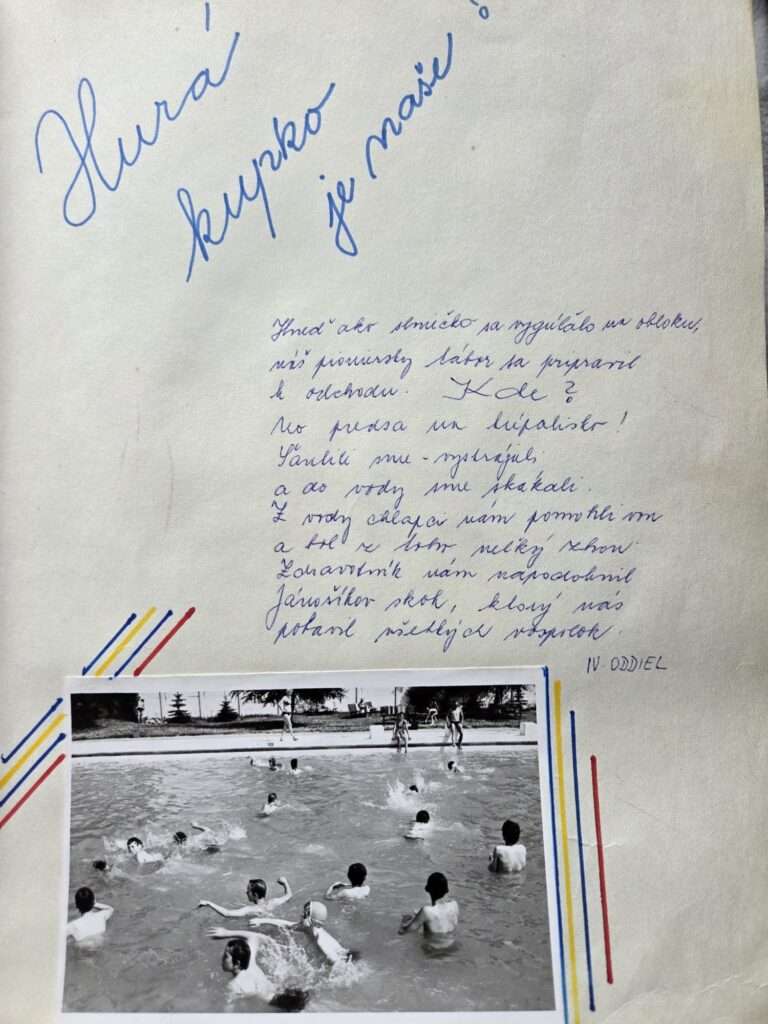 Hurá
kupko
je naše!
Hneď ako slniečko sa vygúľalo na oblohu,
náš pioniersky tábor sa pripravil
k odchodu. Kde?
No predsa na kúpalisko!
Šantili sme - vystrájali
a do vody sme skákali.
Z vody chlapci nám pomohli von
a bol z toho veľký zhon.
Zdravotník nám napodobnil
Jánošíkov skok, ktorý nás
pobavil všetkých vospolok.
IV. ODDIEL